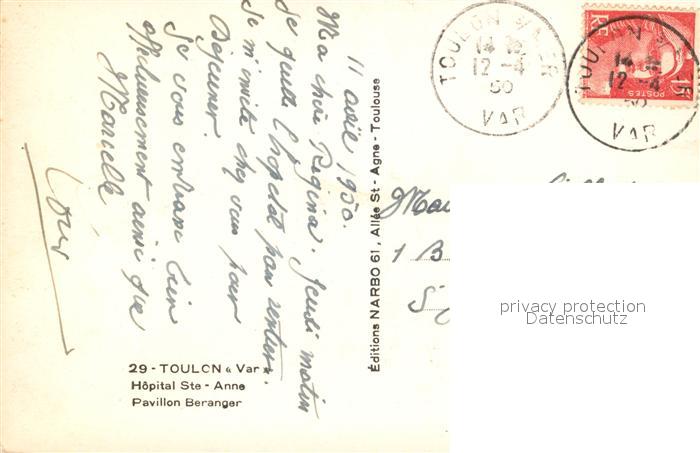 11 avril 1950.
Ma chère Régina. Jeudi matin
je quitte l'hopital pour rentrer.
Je m'invite chez vous pour
Déjeuner.
Je vous embrasse bien
affectueusement ainsi que
Marcelle
TOULON
14
12 - 4
50
VAR
TOULON
14
12 - 4
50
VAR
RF
15F
POSTES
Éditions NARBO 61, Allée St - Agne - Toulouse
1 B
privacy protection
Datenschutz
29 - TOULON « Var »
Hôpital Ste - Anne
Pavillon Beranger